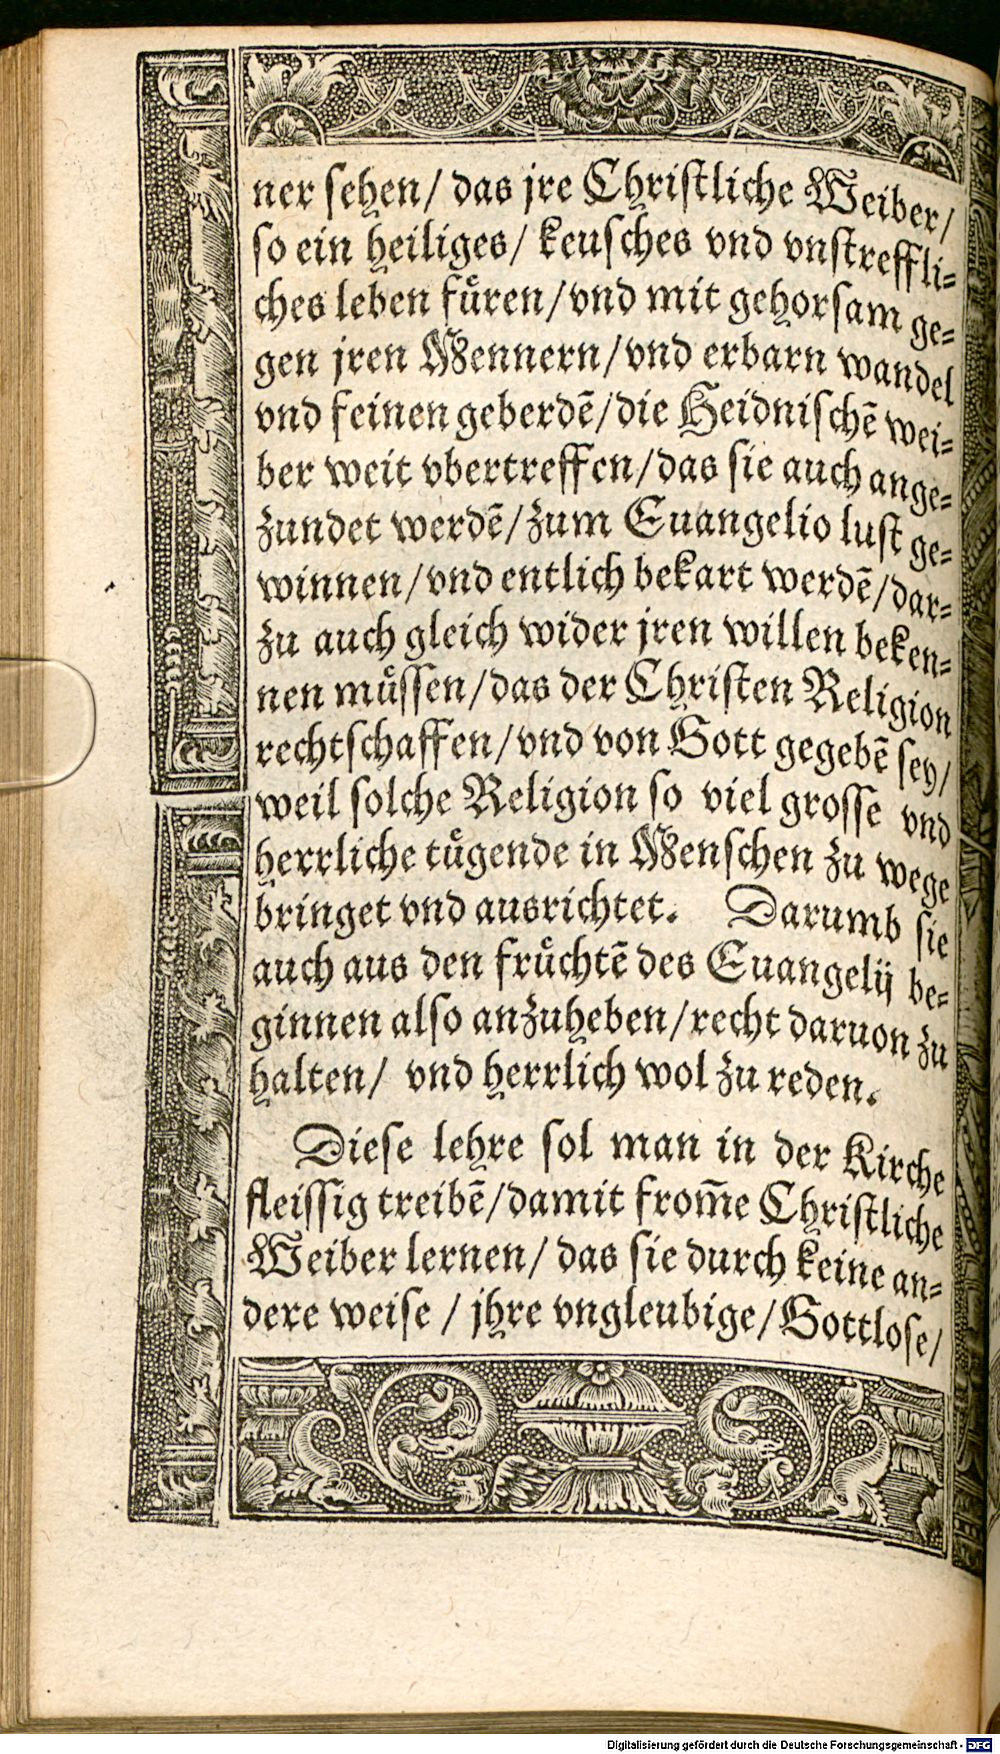 ner sehen/ das jre Christliche Weiber/
so ein heiliges/ keusches vnd vnstreffli-
ches leben fuͤren/ vnd mit gehorsam ge-
gen jren Mennern/ vnd erbarn wandel
vnd feinen geberdẽ/ die Heidnischẽ wei-
ber weit vbertreffen/ das sie auch ange-
zundet werdẽ/ zum Euangelio lust ge-
winnen/ vnd entlich bekart werdẽ/ dar-
zu auch gleich wider jren willen beken-
nen muͤssen/ das der Christen Religion
rechtschaffen/ vnd von Gott gegebẽ sey/
weil solche Religion so viel grosse vnd
herrliche tuͤgende in Menschen zu wege
bringet vnd ausrichtet. Darumb sie
auch aus den fruͤchtẽ des Euangelij be-
ginnen also anzuheben/ recht daruon zu
halten/ vnd herrlich wol zu reden.
Diese lehre sol man in der Kirche
fleissig treibẽ/ damit from̃e Christliche
Weiber lernen/ das sie durch keine an-
dere weise / jhre vngleubige/ Gottlose/
Digitalisierung gefördert durch die Deutsche Forschungsgemeinschaft - DFG